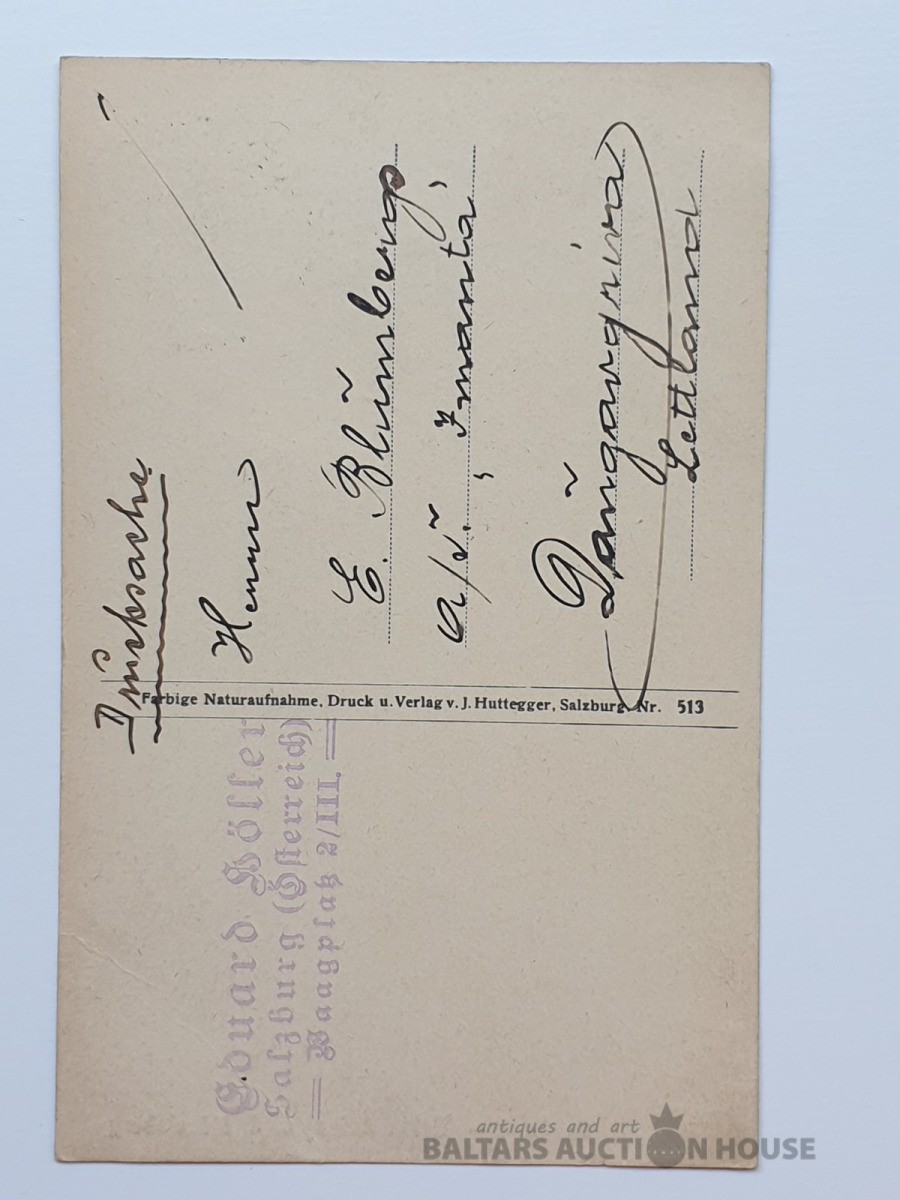 Drucksache
Herrn
E. Blumberg
a/v. "Imanta"
Daugavgriva
Lettland
Farbige Naturaufnahme, Druck u. Verlag v. J. Huttegger, Salzburg. Nr. 513
Eduard Höller
Salzburg (Österreich)
Waagplatz 2/III.
antiques and art
BALTARS AUCTION HOUSE